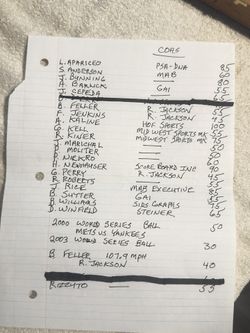 COAS
L. APARICEO PSA-DNA 85
S. ANDERSON MAB 60
J. BUNNING — 80
H. BARNICK GAI 55
J. CEPEDA 55
B. FELLER R. JACKSON 55
F. JENKINS R. JACKSON 45
A. KALINE HOF SPORTS 100
G. KELL MID WEST SPORTS MK 55
R. KINER MIDWEST SPORTS MK 75
J. MARICHAL — 50
MOLITER — 60
P. NIEKRO — 60
H. NEWHAUSER SCOREBOARD INC 90
G. PERRY R. JACKSON 45
R. ROBERTS — 55
J. RICE MAB EXECUTIVE 85
B. SUTTER GAI 55
B. WILLIAMS SIGS GRAPHS 75
D. WINFIELD STEINER 65
2000 WORLD SERIES BALL 50
METS VS YANKEES
2003 WORLD SERIES BALL 30
B. FELLER 107.9 MPH
R. JACKSON 40
RIZZUTO — 55